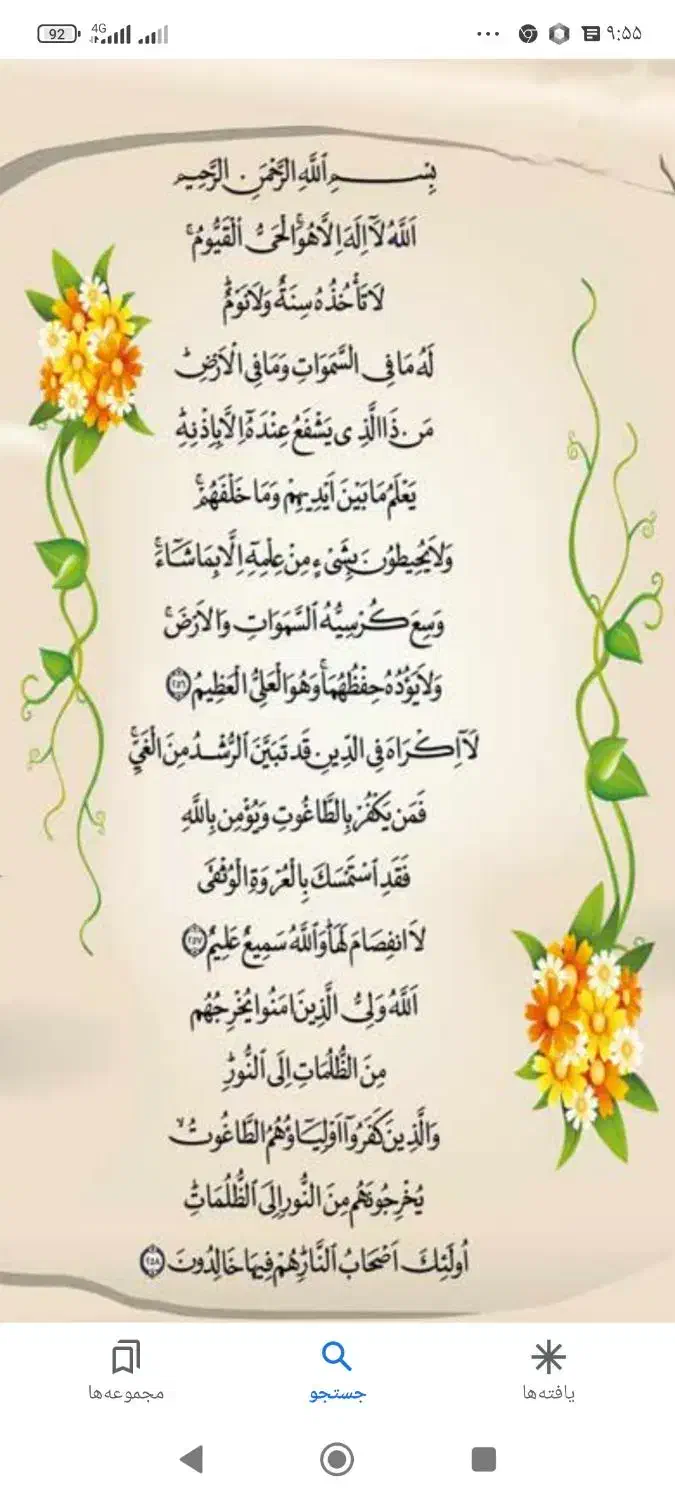 92 4G ۹:۵۵
بِسْمِ ٱللَّهِ الرَّحْمَنِ الرَّحِيمِ
اَللَّهُ لَآ اِلَهَ اِلَّا هُوَ ۚ الْحَىُّ الْقَيُّومُ ۚ
لَا تَأْخُذُهُ سِنَةٌ وَلَا نَوْمٌ ۚ
لَهُ مَا فِى السَّمَوَاتِ وَمَا فِى الْاَرْضِ ۗ
مَن ذَا الَّذِى يَشْفَعُ عِنْدَهُٓ اِلَّا بِاِذْنِهِ ۚ
يَعْلَمُ مَا بَيْنَ اَيْدِيهِمْ وَمَا خَلْفَهُمْ ۚ
وَلَا يُحِيطُونَ بِشَىْءٍ مِنْ عِلْمِهِٓ اِلَّا بِمَا شَآءَ ۚ
وَسِعَ كُرْسِيُّهُ السَّمَوَاتِ وَالْاَرْضَ ۚ
وَلَا يَؤُدُهُ حِفْظُهُمَا ۚ وَهُوَ الْعَلِىُّ الْعَظِيمُ ﴿٢٥٦﴾
لَآ اِكْرَاهَ فِى الدِّينِ قَد تَبَيَّنَ الرُّشْدُ مِنَ الْغَيِّ ۚ
فَمَن يَكْفُرْ بِالطَّاغُوتِ وَيُؤْمِن بِاللَّهِ
فَقَدِ اسْتَمْسَكَ بِالْعُرْوَةِ الْوُثْقَى
لَا انفِصَامَ لَهَا ۗ وَاللَّهُ سَمِيعٌ عَلِيمٌ ﴿٢٥٧﴾
اَللَّهُ وَلِىُّ الَّذِينَ اٰمَنُوا يُخْرِجُهُم
مِنَ الظُّلُمَاتِ اِلَى النُّورِ ۗ
وَالَّذِينَ كَفَرُوٓا اَوْلِيَآؤُهُمُ الطَّاغُوتُ ۙ
يُخْرِجُونَهُم مِنَ النُّورِ اِلَى الظُّلُمَاتِ ۗ
اُولَئِكَ اَصْحَابُ النَّارِ ۖ هُمْ فِيهَا خَالِدُونَ ﴿٢٥٨﴾
یافته‌ها جستجو مجموعه‌ها